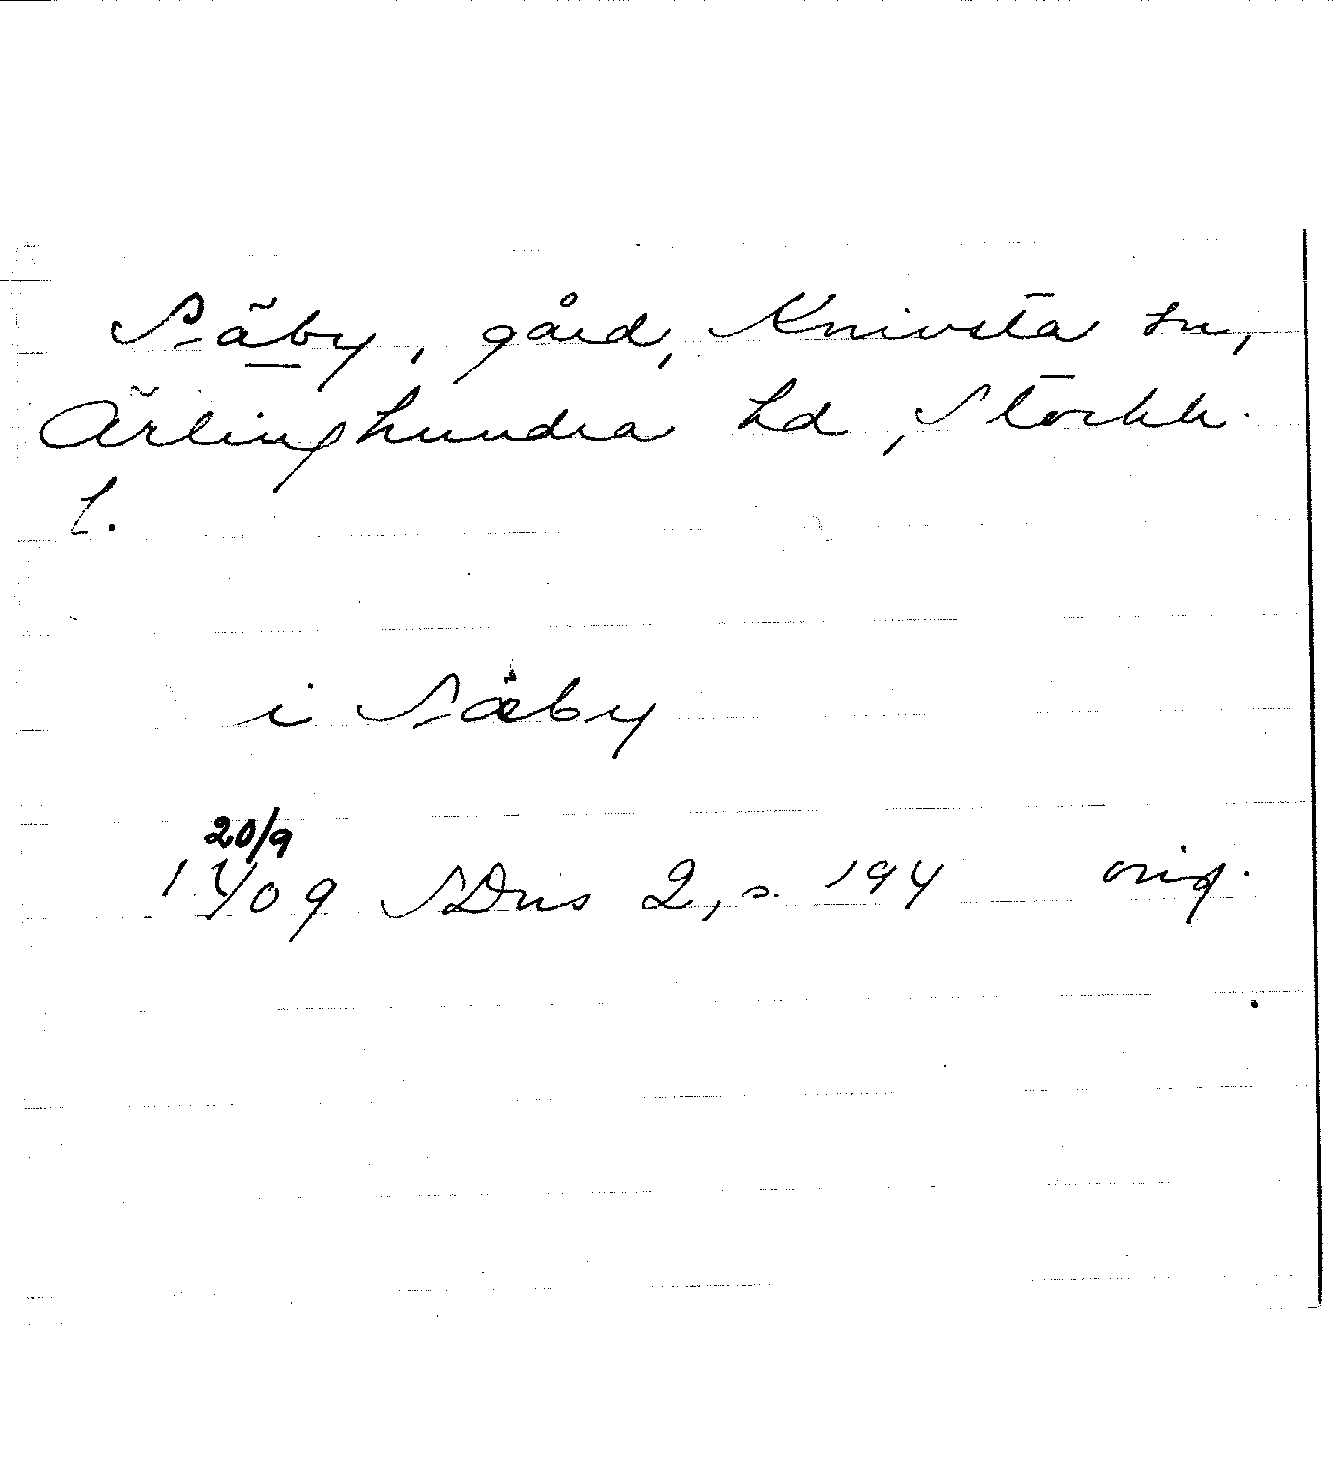 Säby, gård, Knivsta sn,
Ärlinghundra hd, Stockh.
l.
i Sæby
20/9
1409 SDns 2, s. 194 orig.